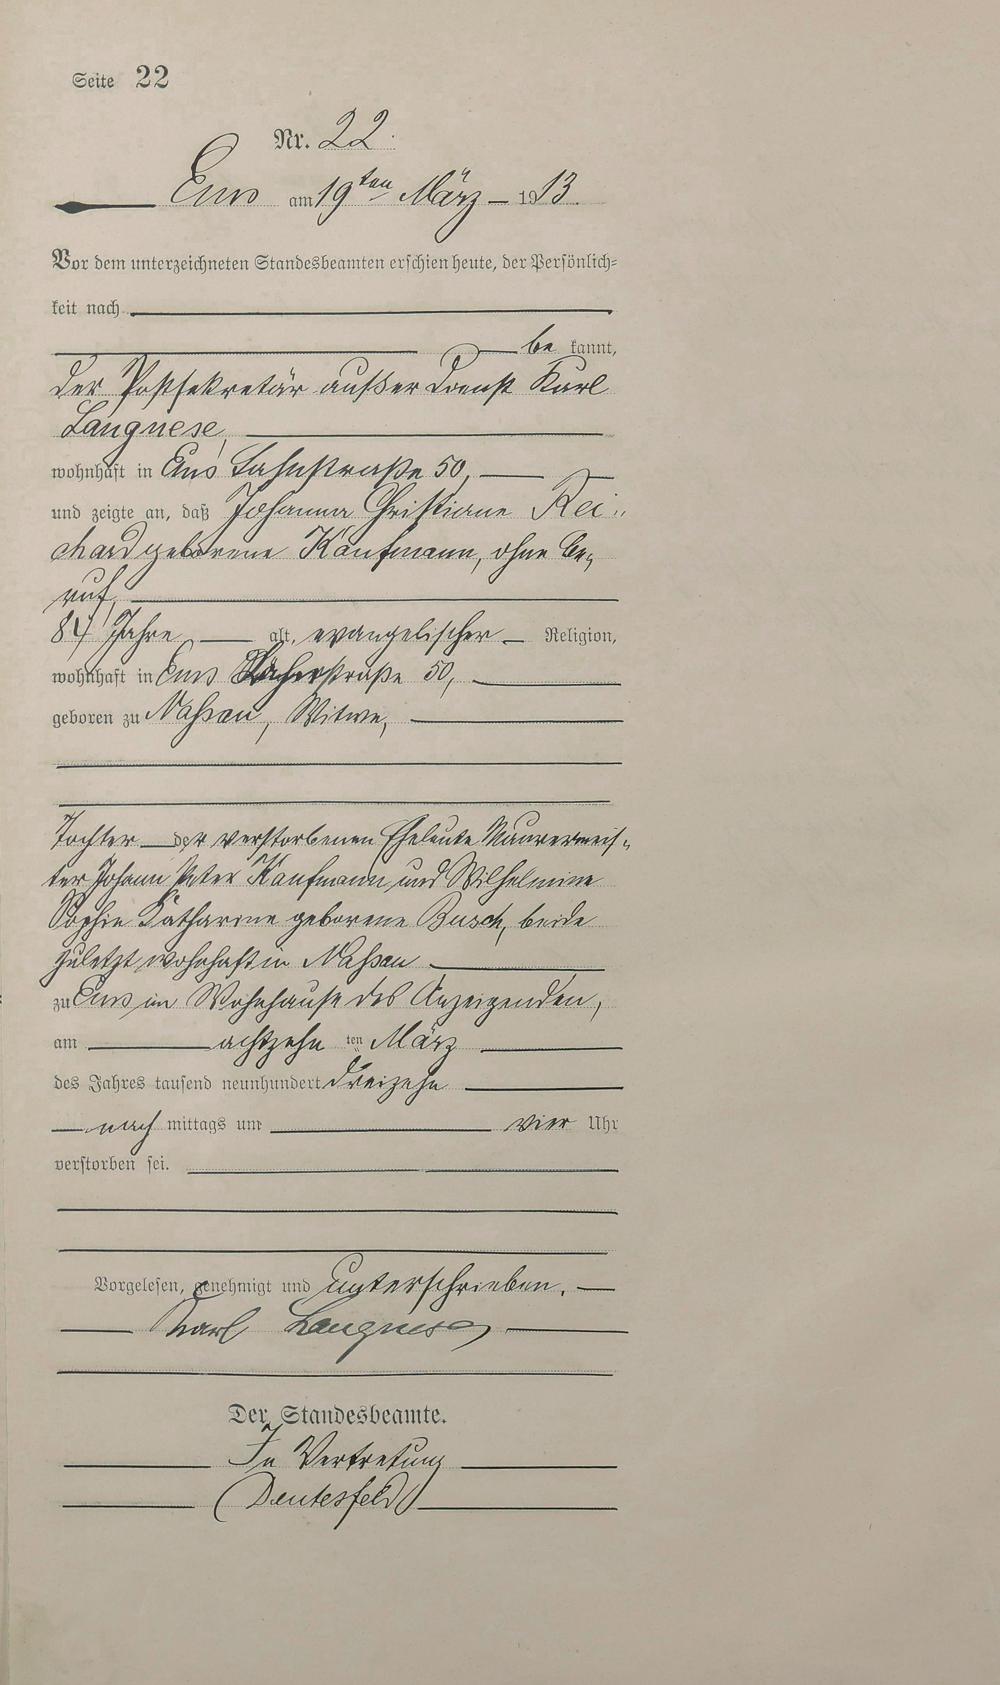 Seite 22
Nr. 22.
Ems am 19ten März 1913.
Vor dem unterzeichneten Standesbeamten erschien heute, der Persönlich=
keit nach
be kannt,
der Postsekretär außer Dienst Karl
Langnese,
wohnhaft in Ems Lahnstraße 50,
und zeigte an, daß Johanna Christiane Rei=
chard geborene Kaufmann, ohne Be=
ruf,
84 Jahre alt, evangelischer Religion,
wohnhaft in Ems Lahnstraße 50,
geboren zu Nassau, Witwe,
Tochter der verstorbenen Eheleute Maurermeis=
ter Johann Peter Kaufmann und Wilhelmine
Sophie Katharine geborene Busch, beide
zuletzt wohnhaft in Nassau
zu Ems im Wohnhause des Anzeigenden,
am achtzehn ten März
des Jahres tausend neunhundert dreizehn
nach mittags um vier Uhr
verstorben sei.
Vorgelesen, genehmigt und unterschrieben.
Karl Langnese
Der Standesbeamte.
In Vertretung